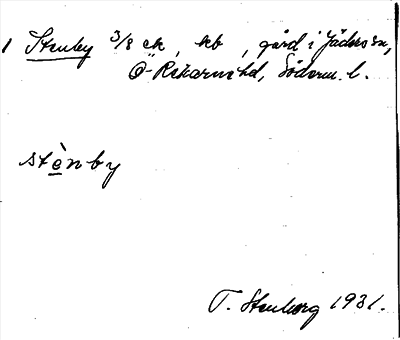 1 Stenby 3/8 ek, kb, gård i Jäders sn,
Ö-Rekarne hd, Söderm. l.
stènby
T. Stenborg 1931.